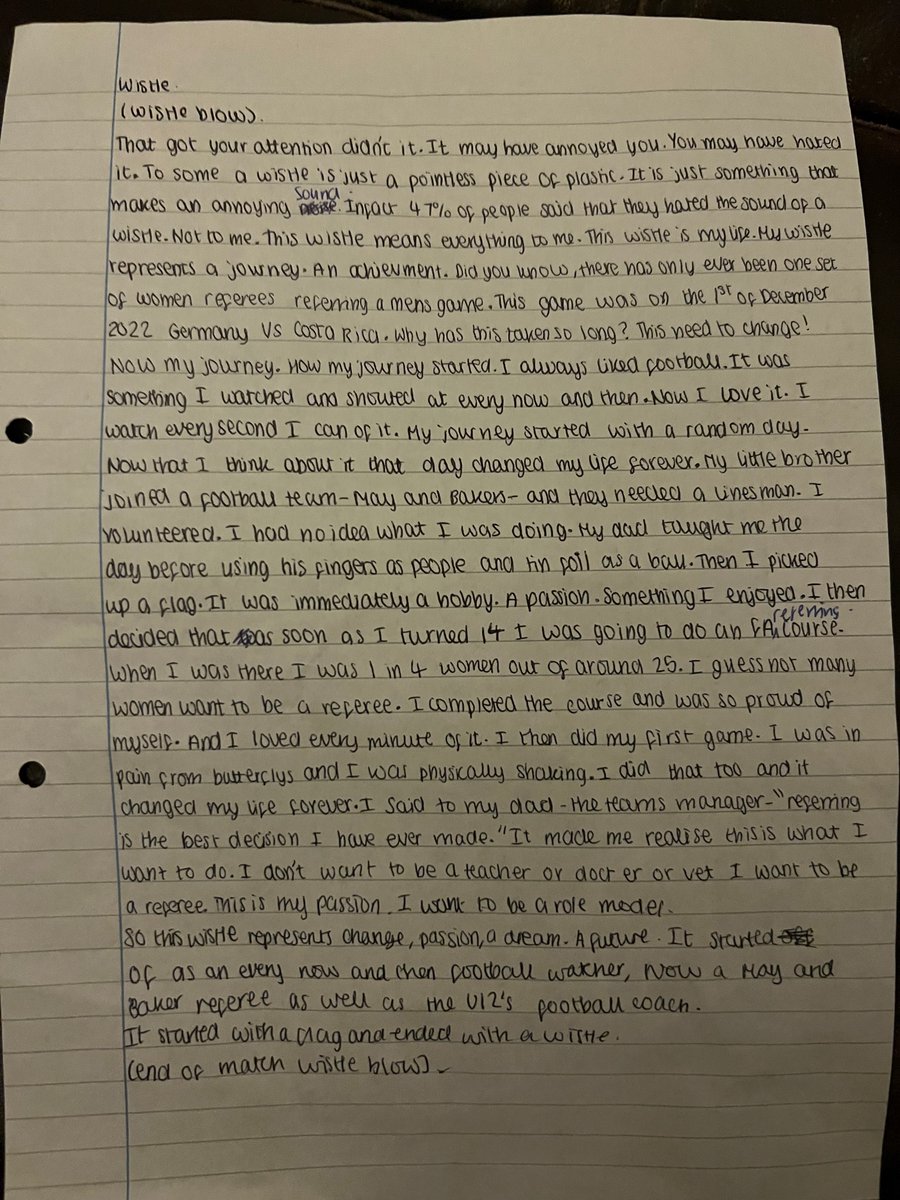 Wistle.
(wistle blow).
That got your attention didn't it. It may have annoyed you. You may have hated
it. To some a wistle is just a pointless piece of plastic. It is just something that
makes an annoying sound. Infact 47% of people said that they hated the sound of a
wistle. Not to me. This wistle means everything to me. This wistle is my life. My wistle
represents a journey. An achievment. Did you know, there has only ever been one set
of women referees referring a mens game. This game was on the 1st of December
2022 Germany Vs Costa Rica. Why has this taken so long? This need to change!
Now my journey. How my journey started. I always liked football. It was
something I watched and shouted at every now and then. Now I love it. I
watch every second I can of it. My journey started with a random day.
Now that I think about it that day changed my life forever. My little brother
joined a football team - May and Bakers - and they needed a linesman. I
volunteered. I had no idea what I was doing. My dad taught me the
day before using his fingers as people and tin foil as a ball. Then I picked
up a flag. It was immediately a hobby. A passion. Something I enjoyed. I then
decided that as soon as I turned 14 I was going to do an FA referring course.
When I was there I was 1 in 4 women out of around 25. I guess not many
women want to be a referee. I completed the course and was so proud of
myself. And I loved every minute of it. I then did my first game. I was in
pain from butterflys and I was physically shaking. I did that too and it
changed my life forever. I said to my dad - the teams manager - "referring
is the best decision I have ever made." It made me realise this is what I
want to do. I don't want to be a teacher or doct er or vet I want to be
a referee. This is my passion. I want to be a role model.
So this wistle represents change, passion, a dream. A future. It started
of as an every now and then football watcher, Now a May and
Baker referee as well as the U12's football coach.
It started with a flag and ended with a wistle.
(end of match wistle blow).